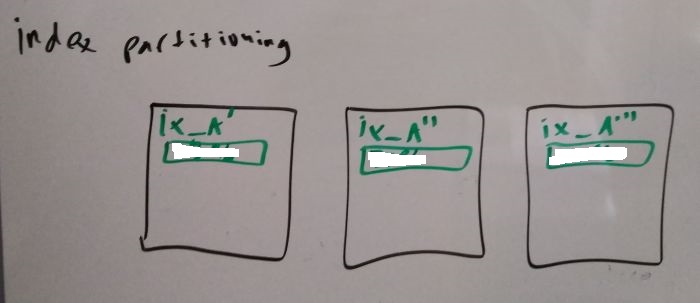 index partitioning
ix_A' ix_A'' ix_A'''